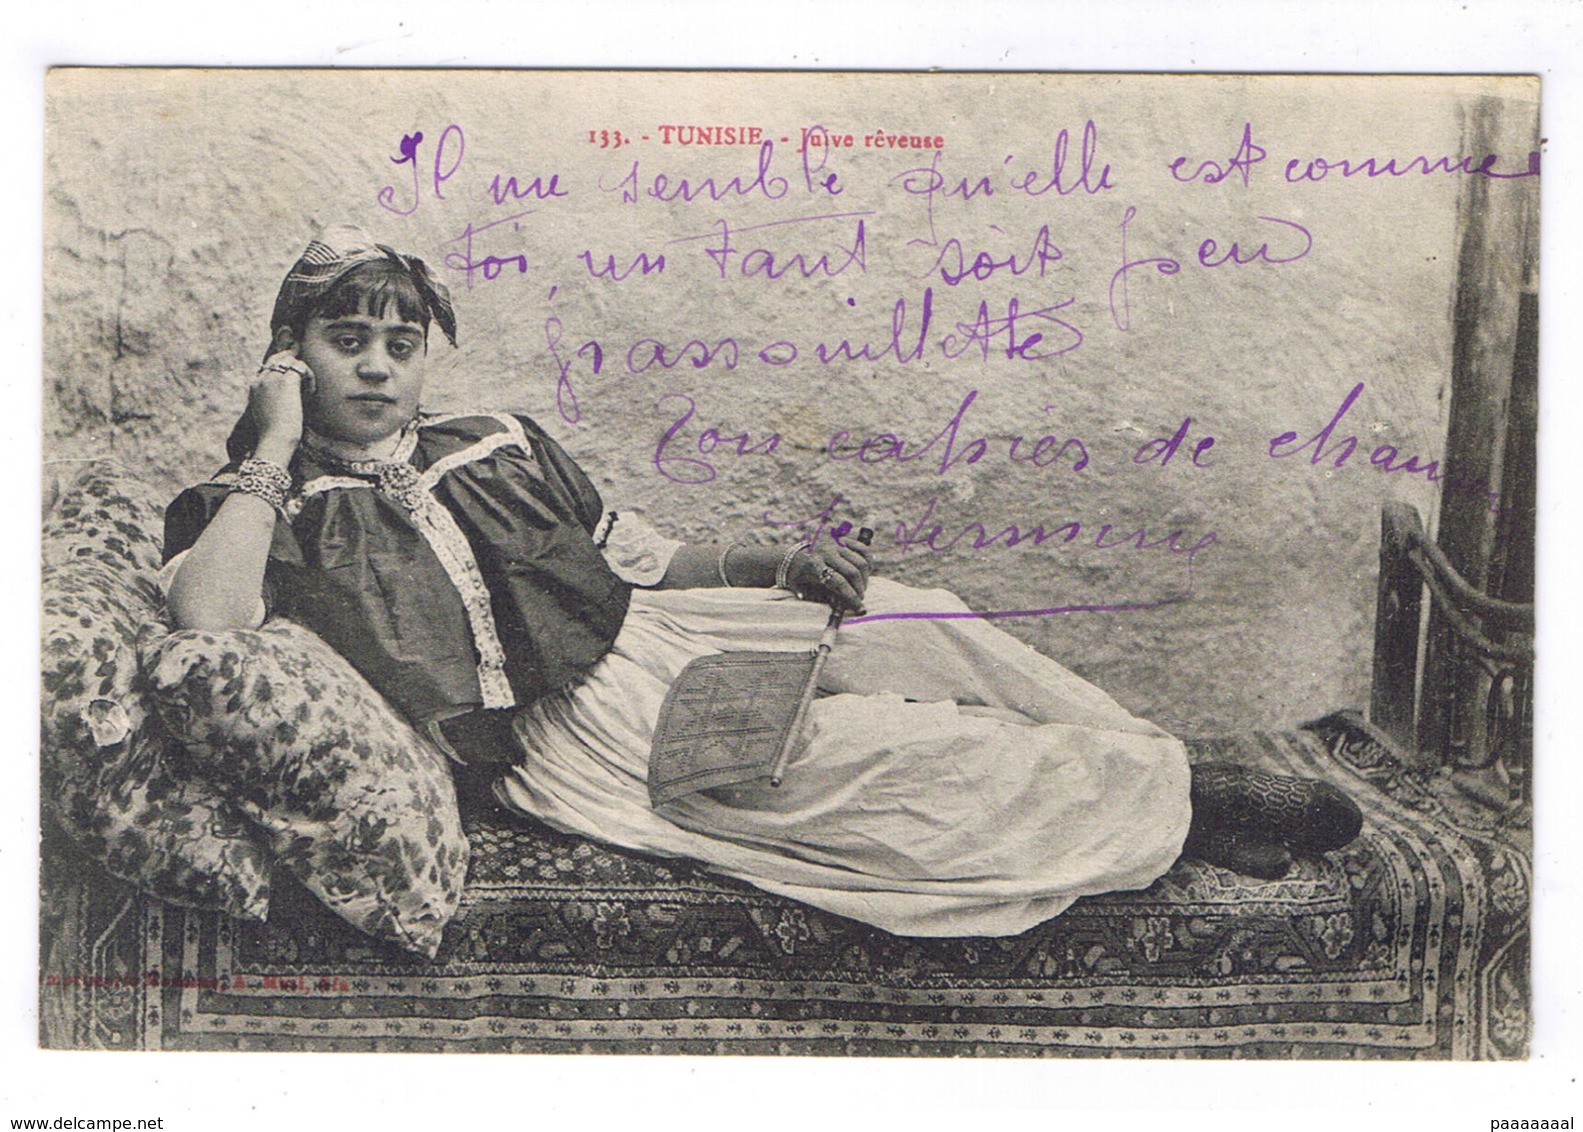 133. - TUNISIE. - Juive rêveuse
Il me semble qu'elle est comme
toi, un tant soit peu
grassouillette
Ton cahier de
se termine
www.delcampe.net
paaaaaaal